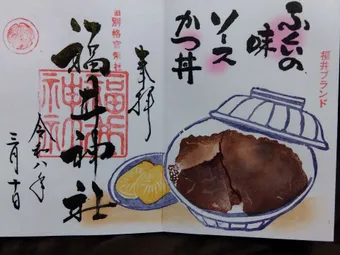 ふくいの
味
ソース
かつ丼
福井ブランド
別格官幣社
奉拝
福井神社
三月十日